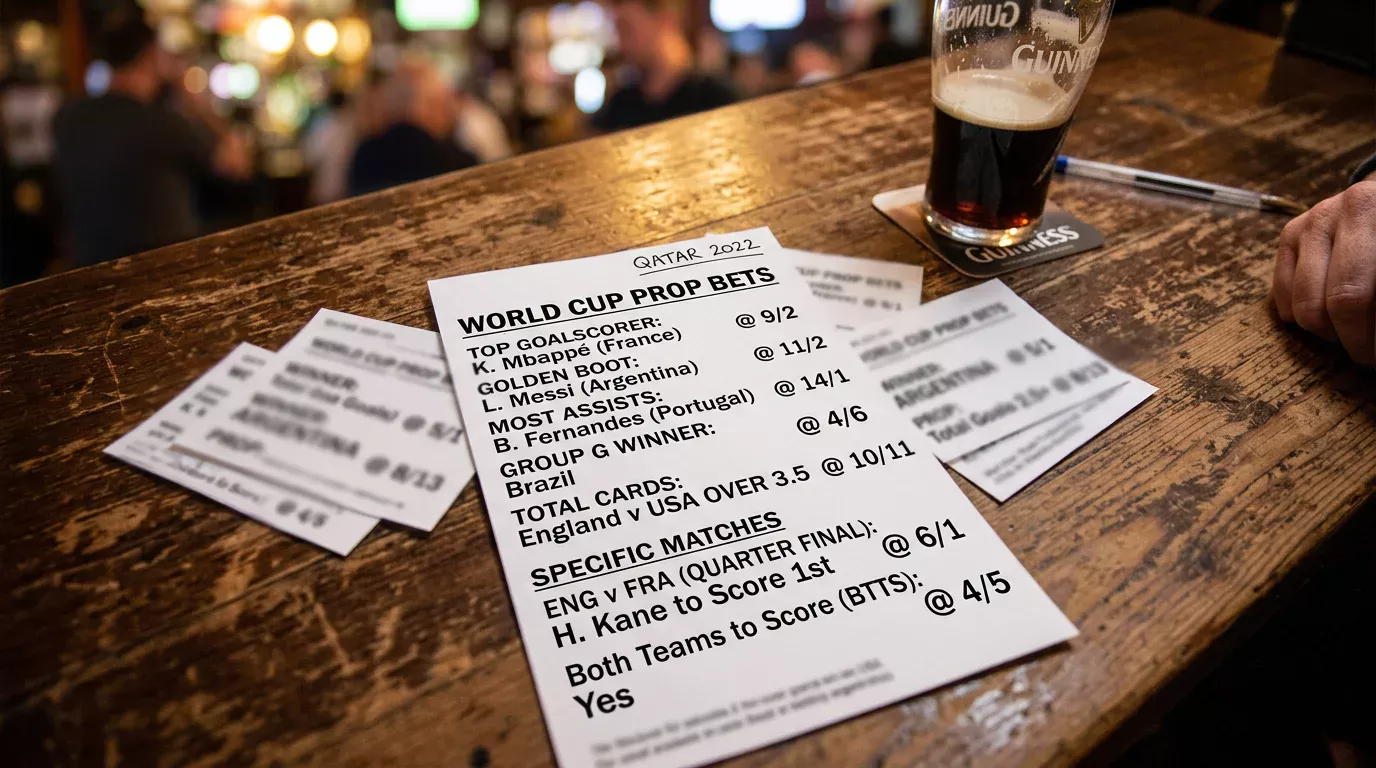 GUINNESS
GUINNESS
GUINNESS
QATAR 2022
WORLD CUP PROP BETS
TOP GOALSCORER:
K. Mbappé (France) @ 9/2
GOLDEN BOOT:
L. Messi (Argentina) @ 11/2
MOST ASSISTS:
B. Fernandes (Portugal) @ 14/1
GROUP G WINNER:
Brazil @ 4/6
TOTAL CARDS:
England v USA OVER 3.5 @ 10/11
SPECIFIC MATCHES
ENG v FRA (QUARTER FINAL):
H. Kane to Score 1st @ 6/1
Both Teams to Score (BTTS):
Yes @ 4/5
WORLD CUP PROP B
WINNER:
@ 5/1
WINNER:
ARGENTINA
PROP:
@ 8/13
@ 4/5
UP PROP BETS
@ 5/1
ORLD CUP PROP BETS
WINNER:
ARGENTINA @ 5/1
PROP:
Total Goals 2.5+ @ 8/13